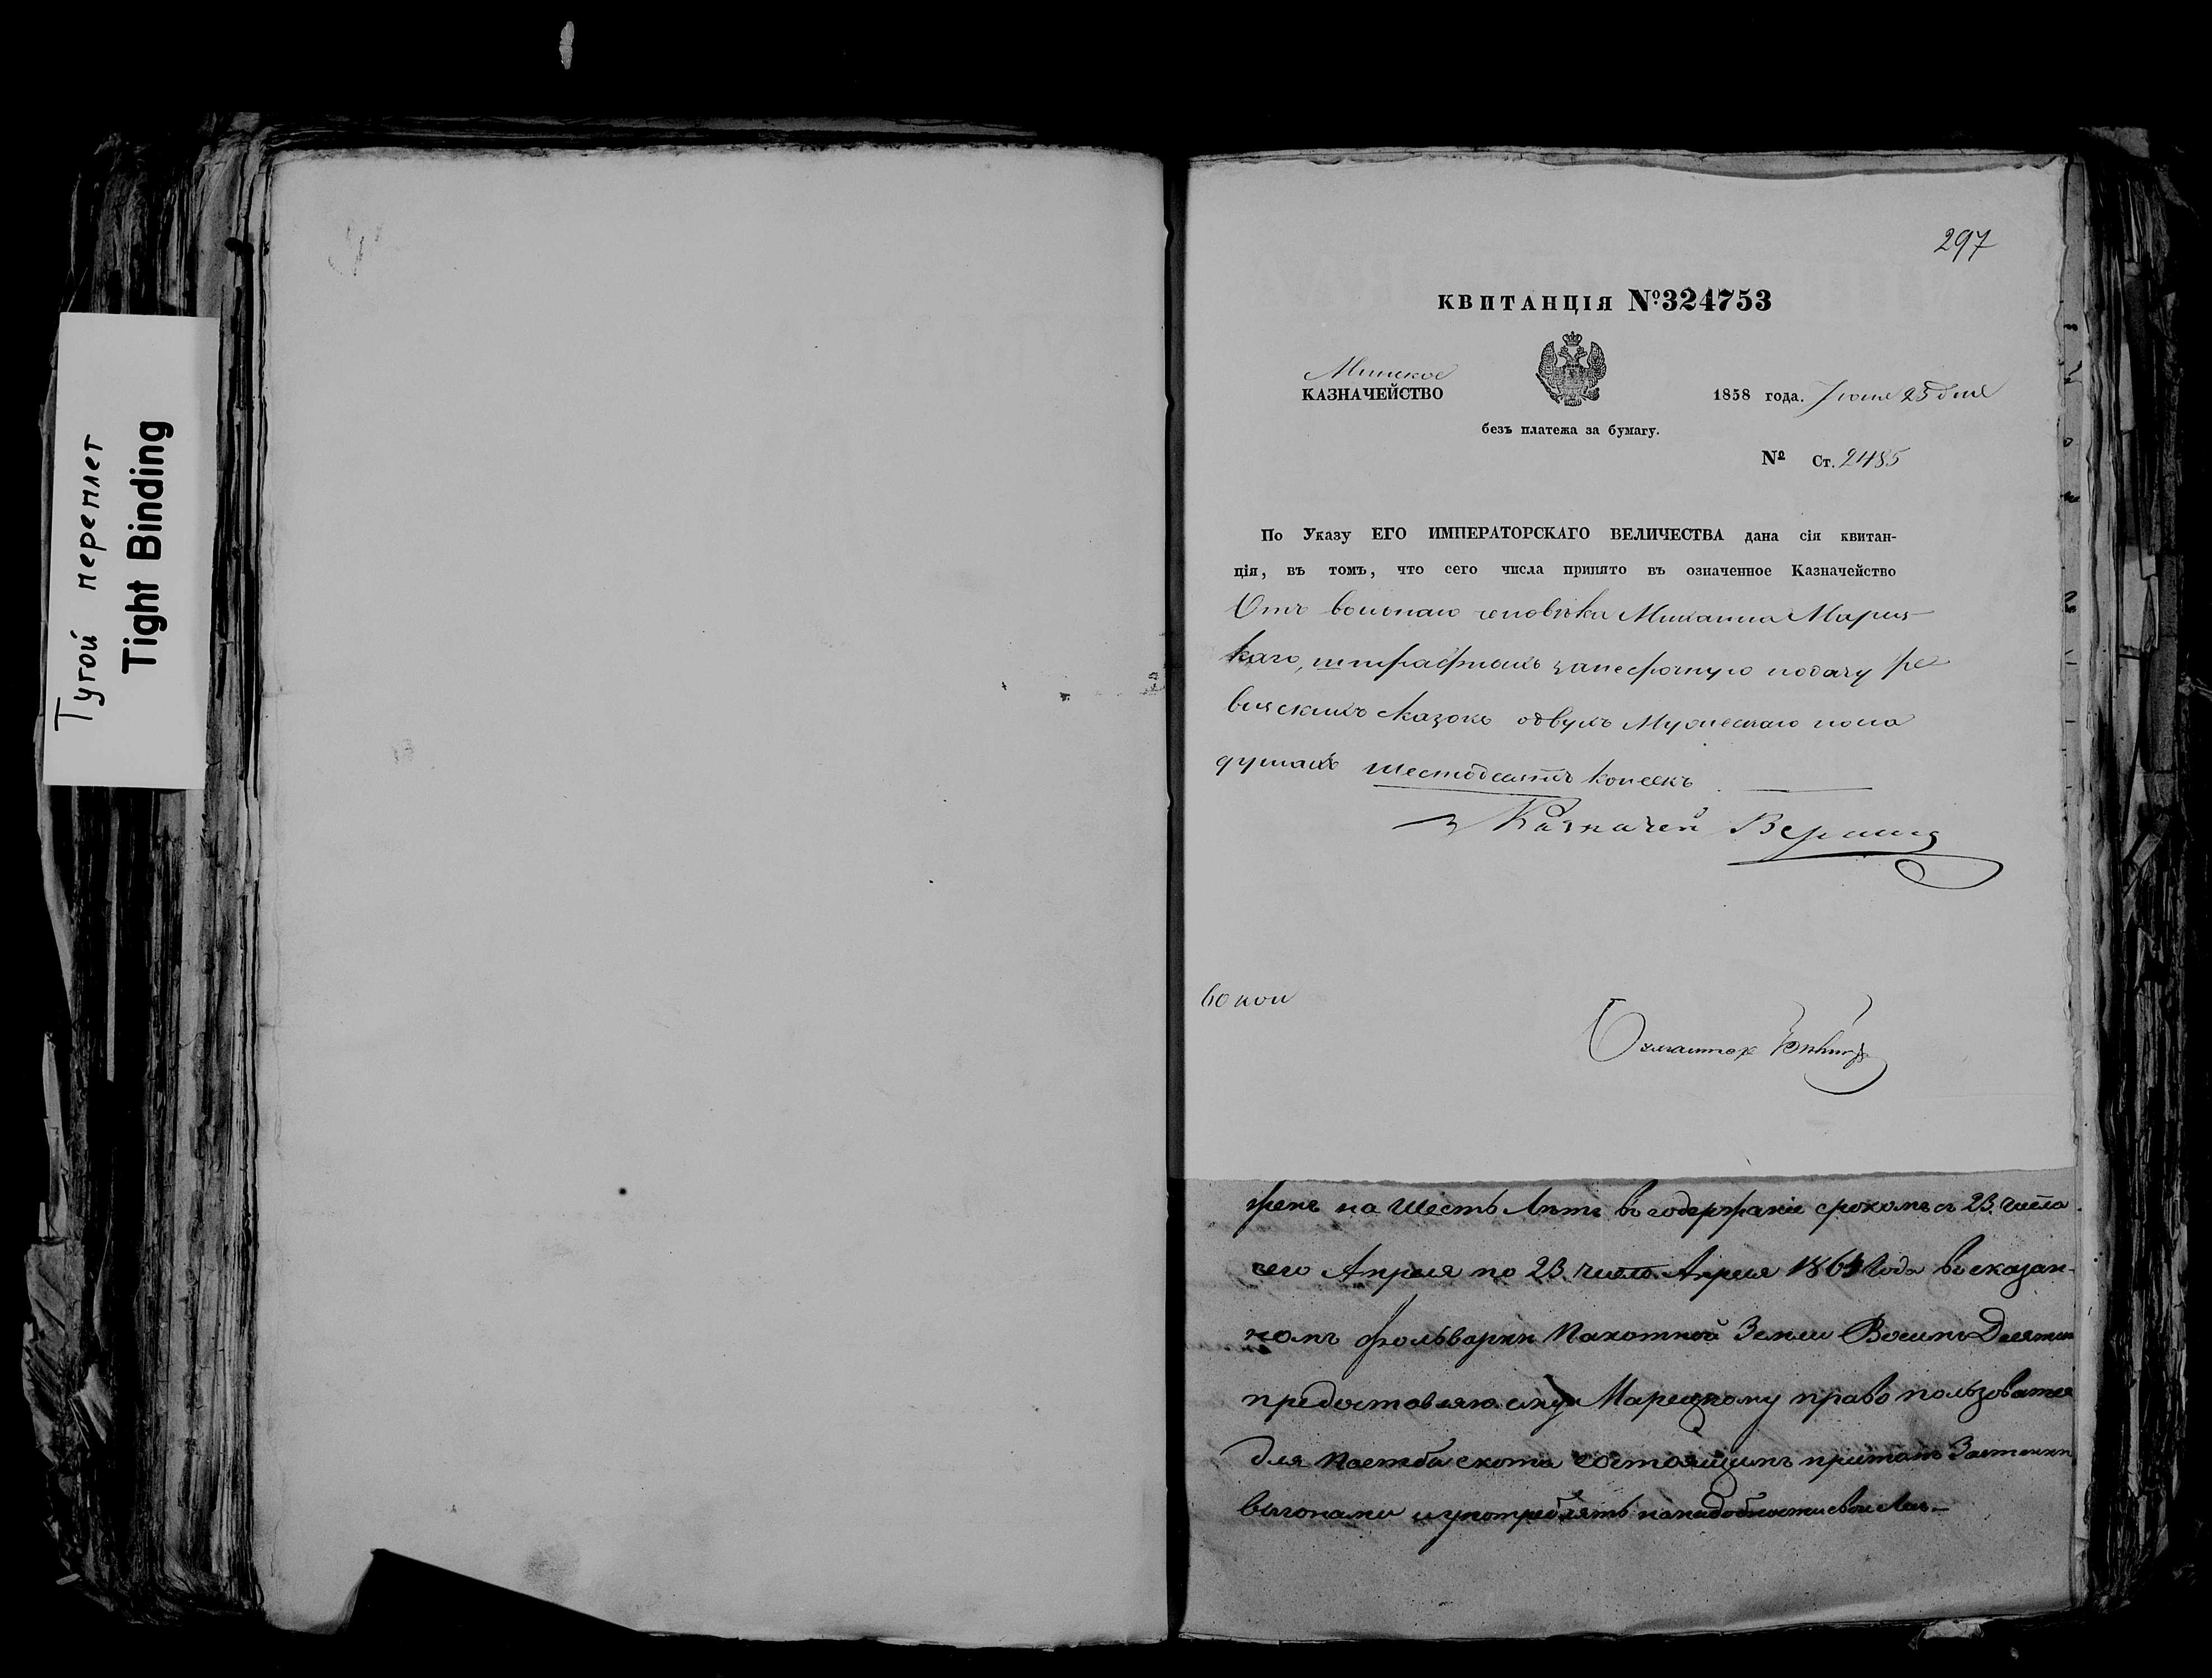 Тугой переплет
Tight Binding
297
КВИТАНЦІЯ №324753
Минское
КАЗНАЧЕЙСТВО
1858 года. Іюня 23 дня
безъ платежа за бумагу.
№ Ст. 2485
По Указу ЕГО ИМПЕРАТОРСКАГО ВЕЛИЧЕСТВА дана сія квитан-
ція, въ томъ, что сего числа принято въ означенное Казначейство
Отъ вольнаго человѣка Михаила Марец-
каго, штрафныхъ занесрочную подачу ре
визскихъ сказокъ одвухъ Мужескаго пола
душахъ шестьдесятъ копѣекъ
Казначей
60 коп
на шесть лѣтъ въ содержаніе срокомъ съ 23 числа
сего Апреля по 23 число Апреля 1864 года въ сказан-
номъ фольварки Пахотной Земли Восимъ Десятин
предоставляю ему Марецкому право пользоватся
для пастьбы скота состоящимъ притомъ Застенки
выгонами и употреблять понадобности свои